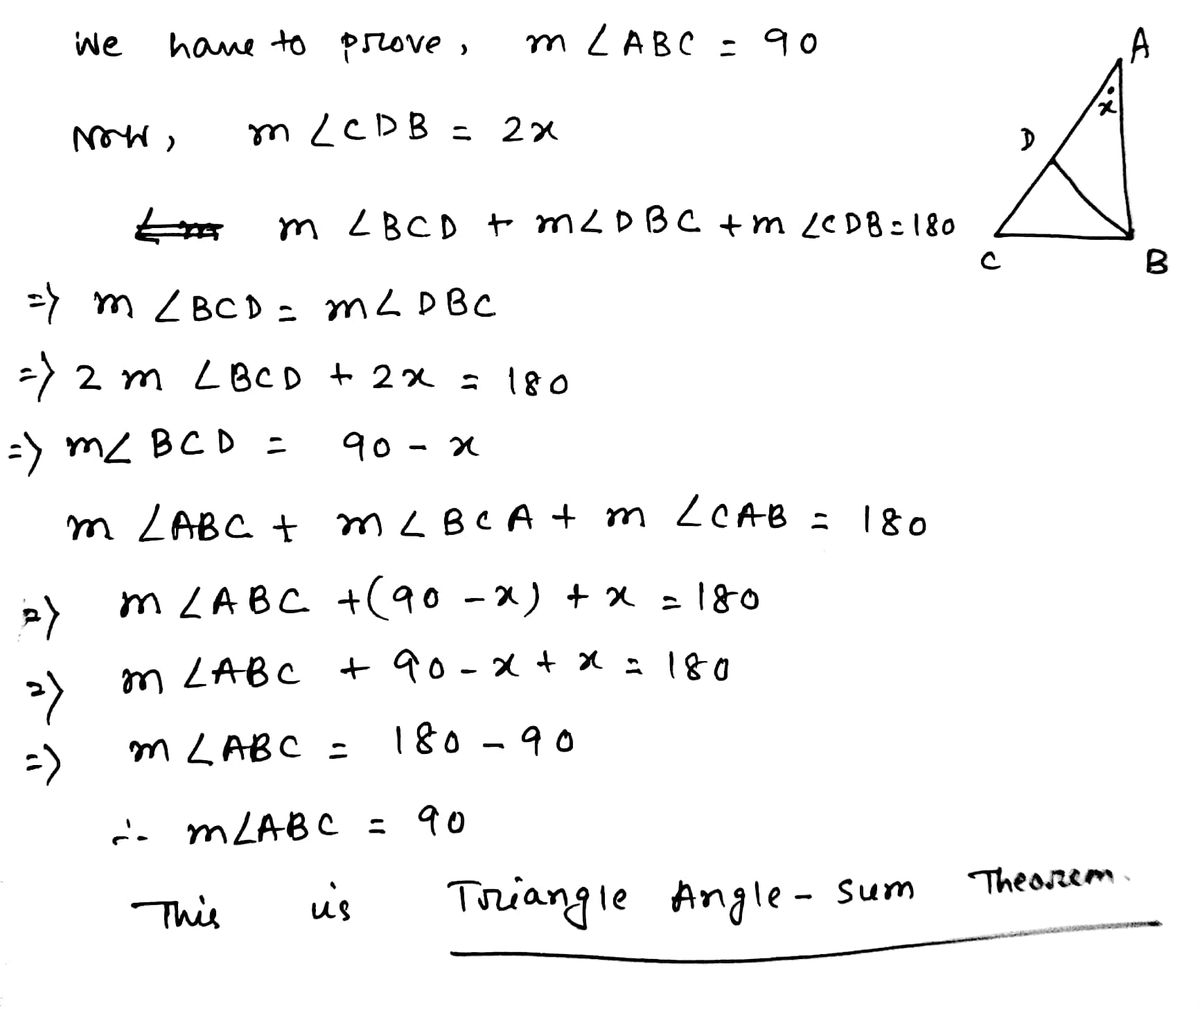 We have to prove, m ∠ABC = 90
Now, m ∠CDB = 2x
m ∠BCD + m∠DBC + m ∠CDB = 180
=> m ∠BCD = m∠DBC
=> 2 m ∠BCD + 2x = 180
=> m∠BCD = 90 - x
m ∠ABC + m∠BCA + m ∠CAB = 180
=> m ∠ABC + (90 - x) + x = 180
=> m ∠ABC + 90 - x + x = 180
=> m ∠ABC = 180 - 90
∴ m∠ABC = 90
This is Triangle Angle - Sum Theorem.
A
x
D
C
B